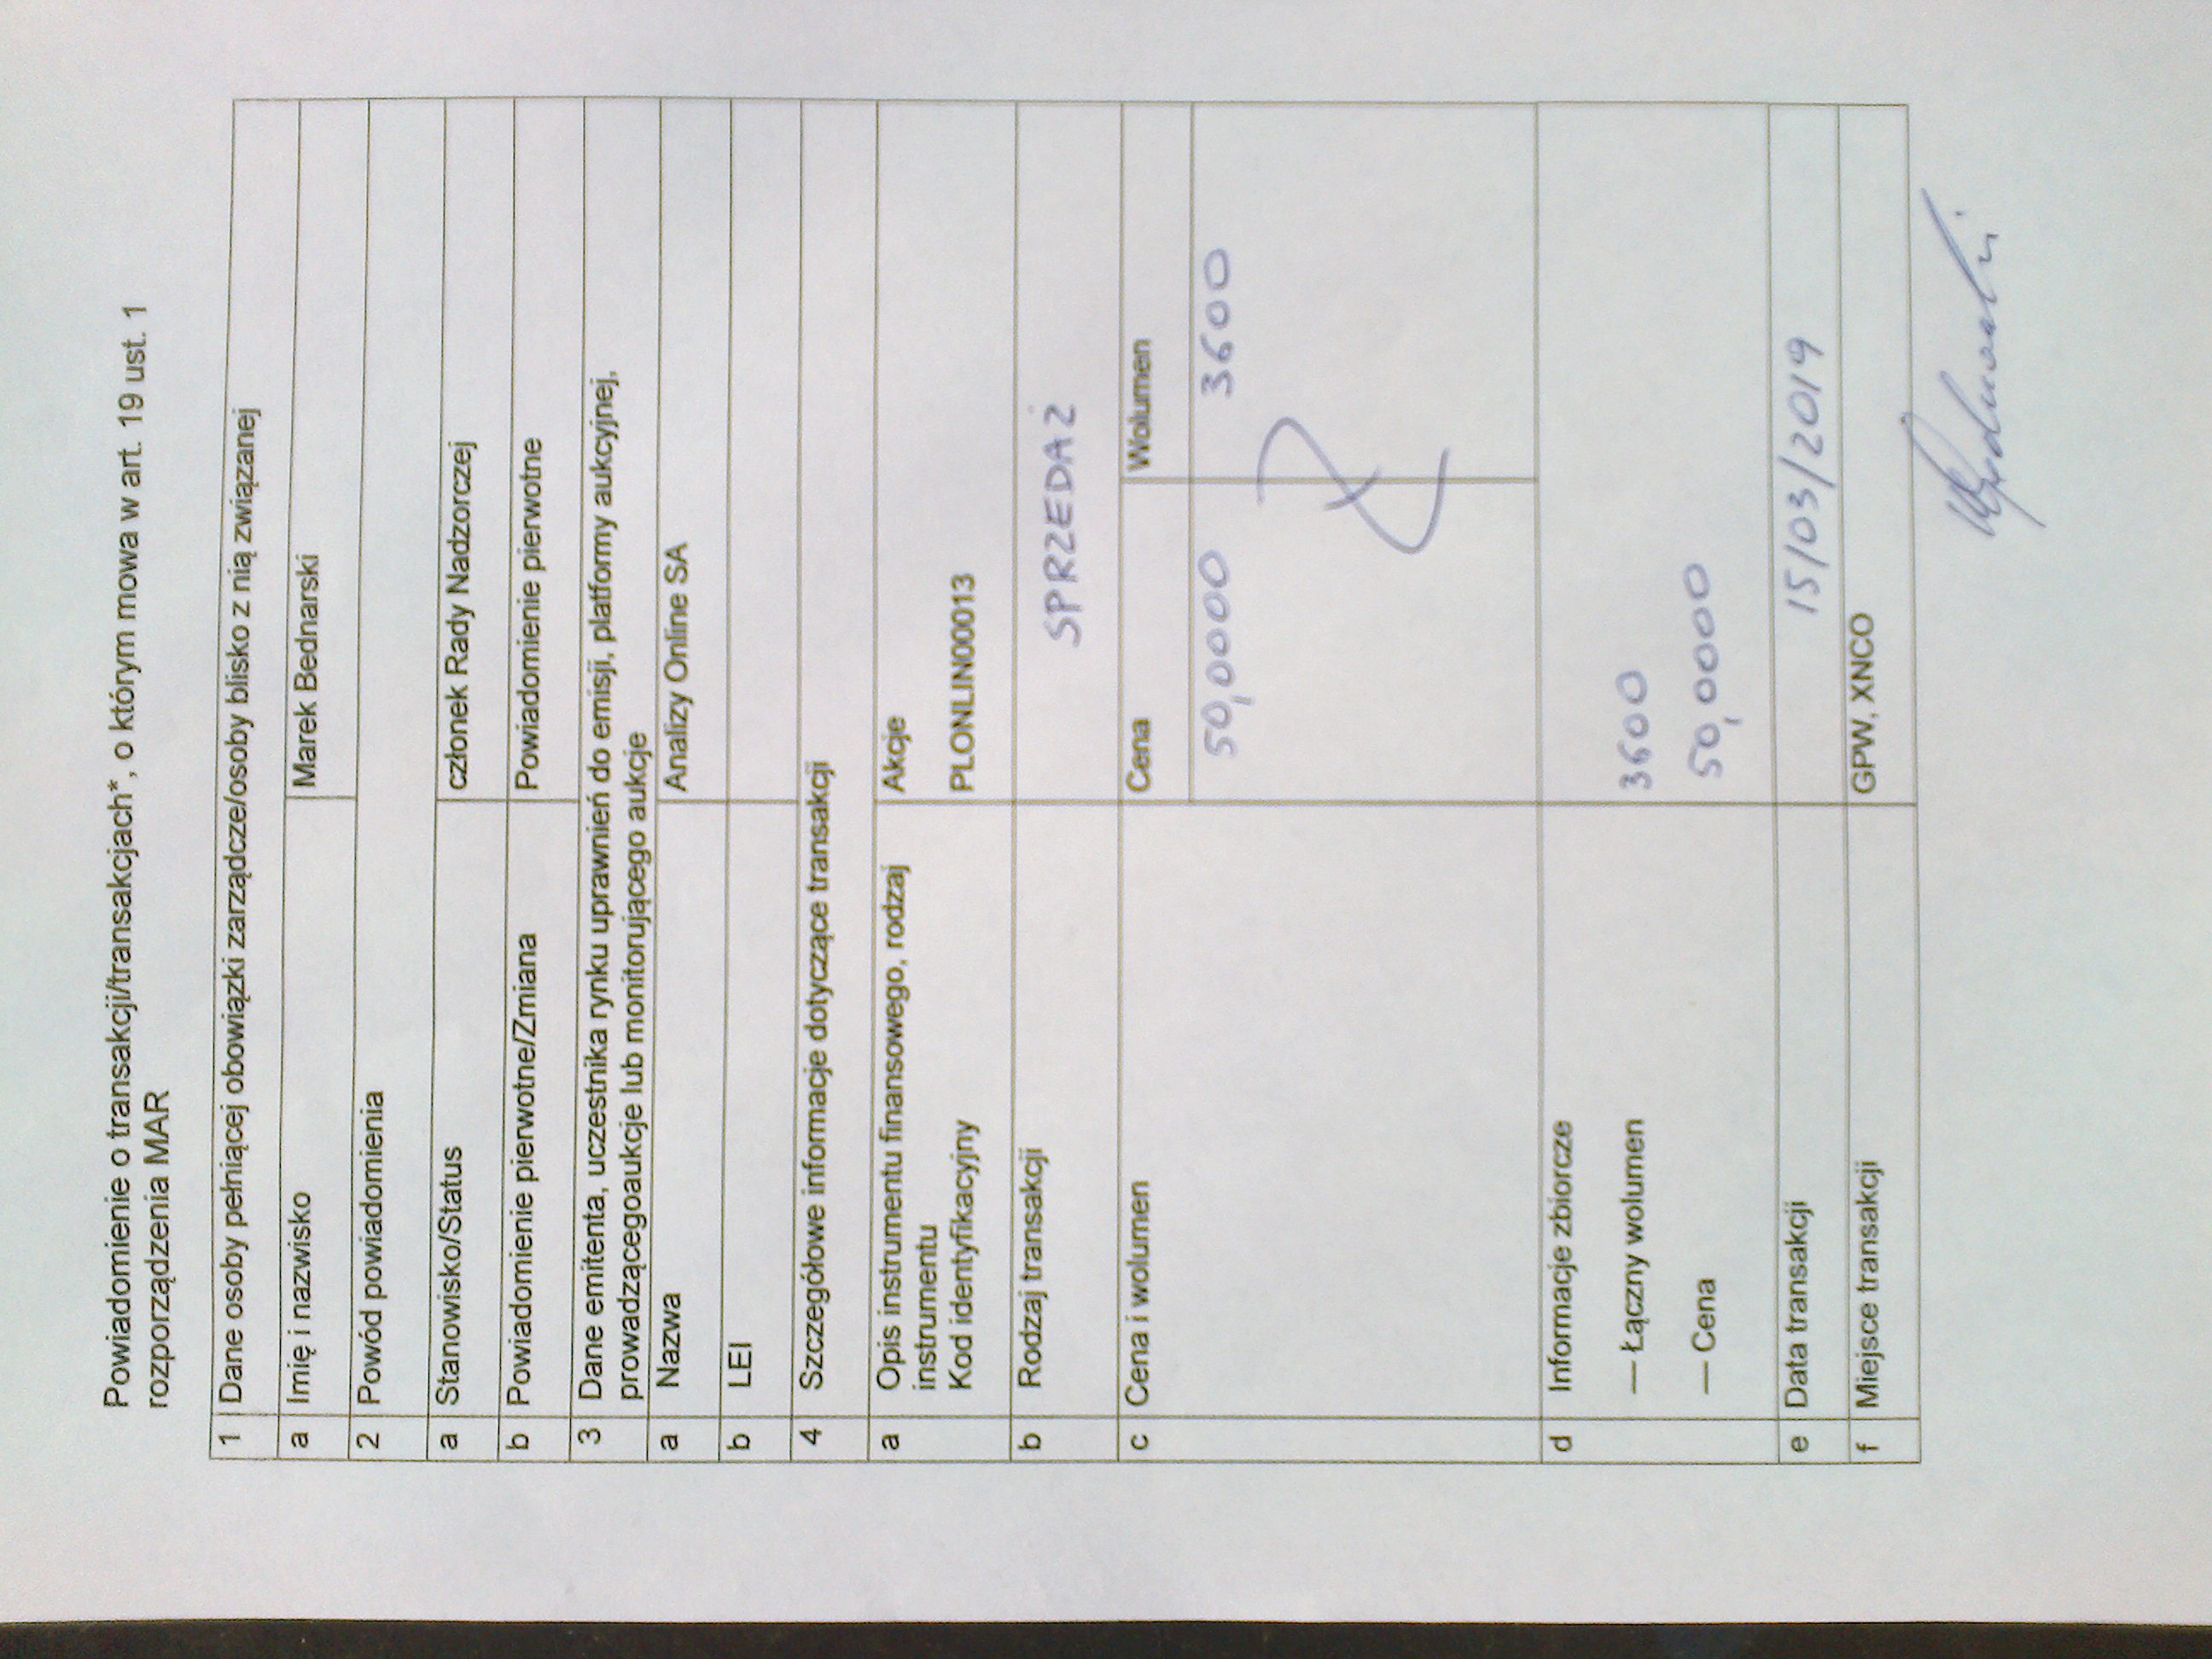 Powiadomienie o transakcji/transakcjach*, o którym mowa w art. 19 ust. 1
rozporządzenia MAR
1 Dane osoby pełniącej obowiązki zarządcze/osoby blisko z nią związanej
a Imię i nazwisko Marek Bednarski
2 Powód powiadomienia
a Stanowisko/Status członek Rady Nadzorczej
b Powiadomienie pierwotne/Zmiana Powiadomienie pierwotne
3 Dane emitenta, uczestnika rynku uprawnień do emisji, platformy aukcyjnej,
prowadzącegoaukcje lub monitorującego aukcje
a Nazwa Analizy Online SA
b LEI
4 Szczegółowe informacje dotyczące transakcji
a Opis instrumentu finansowego, rodzaj Akcje
instrumentu
Kod identyfikacyjny PLONLIN00013
b Rodzaj transakcji SPRZEDAŻ
c Cena i wolumen Cena Wolumen
50,0000 3600
d Informacje zbiorcze
— Łączny wolumen 3600
— Cena 50,0000
e Data transakcji 15/03/2019
f Miejsce transakcji GPW, XNCO